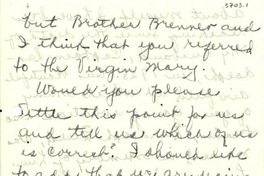 3703.1
but Brother Brenner and
I think that you referred
to the Virgin Mary.
Would you please
settle this point for us
and tell us which of us
is correct? I should like
to add that we are using